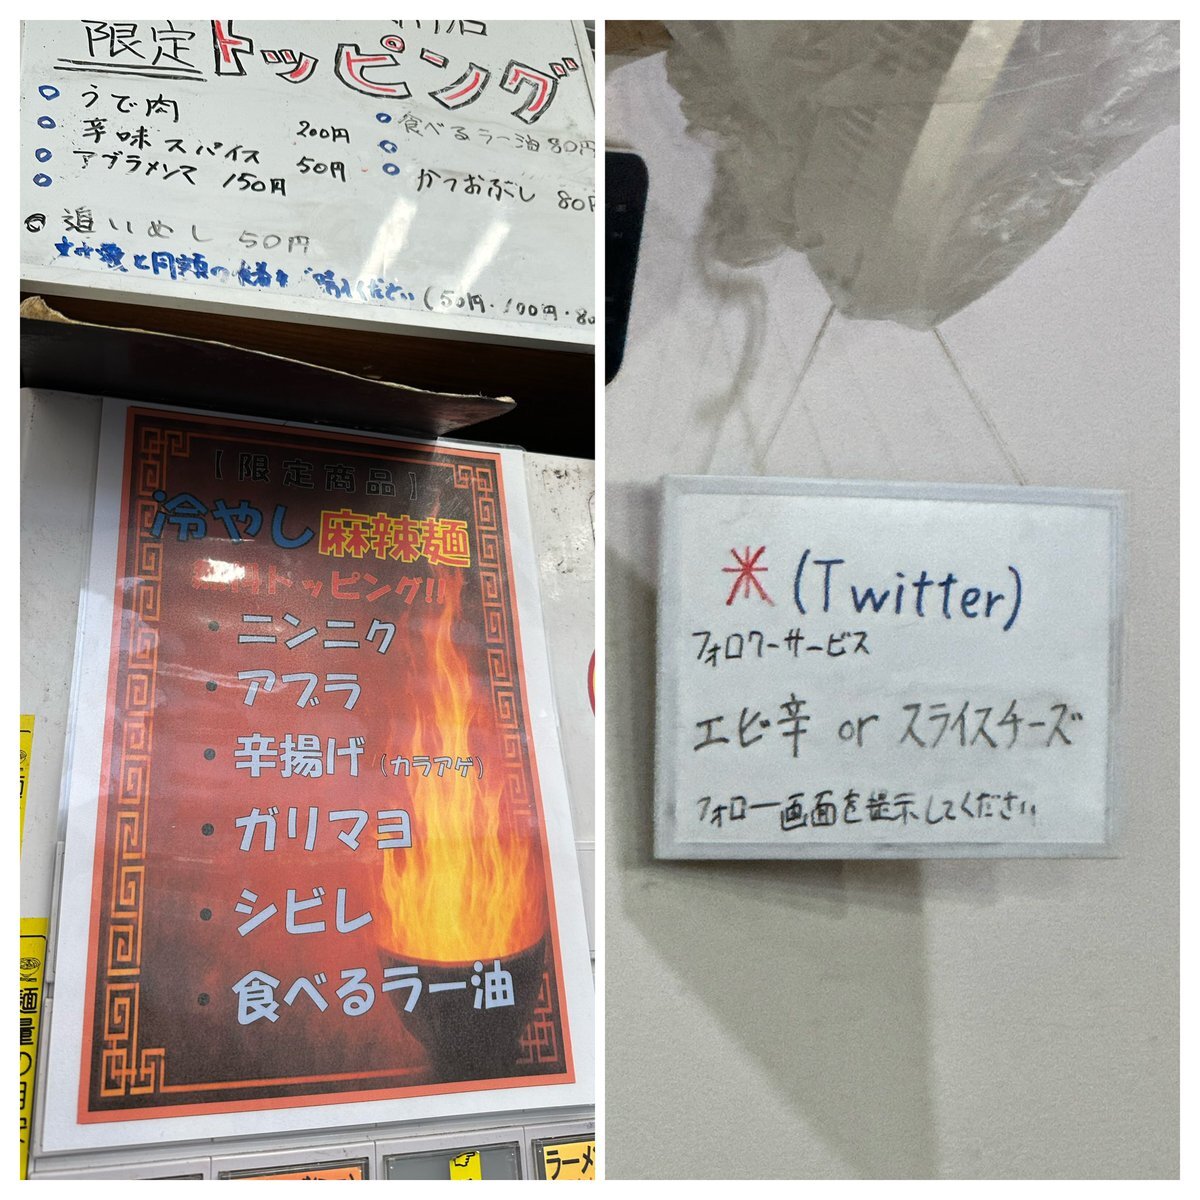 限定トッピング
うで肉 200円
辛味スパイス 50円
アブラメンマ 150円
食べるラー油 80円
かつおぶし 80円
追いめし 50円
と同額の ください (50円・100円・80
【限定商品】
冷やし麻辣麺
トッピング!!
・ニンニク
・アブラ
・辛揚げ(カラアゲ)
・ガリマヨ
・シビレ
・食べるラー油
麺量
ラーメン
※(Twitter)
フォロワーサービス
エビ辛 or スライスチーズ
フォロー画面を提示してください